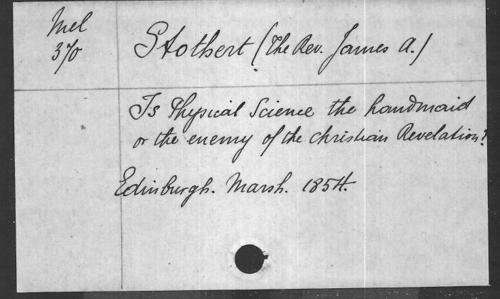 Mel
370
Stothert (The Rev. James A.)
Is Physical Science the handmaid
or the enemy of the Christian Revelation?
Edinburgh. Marsh. 1854.